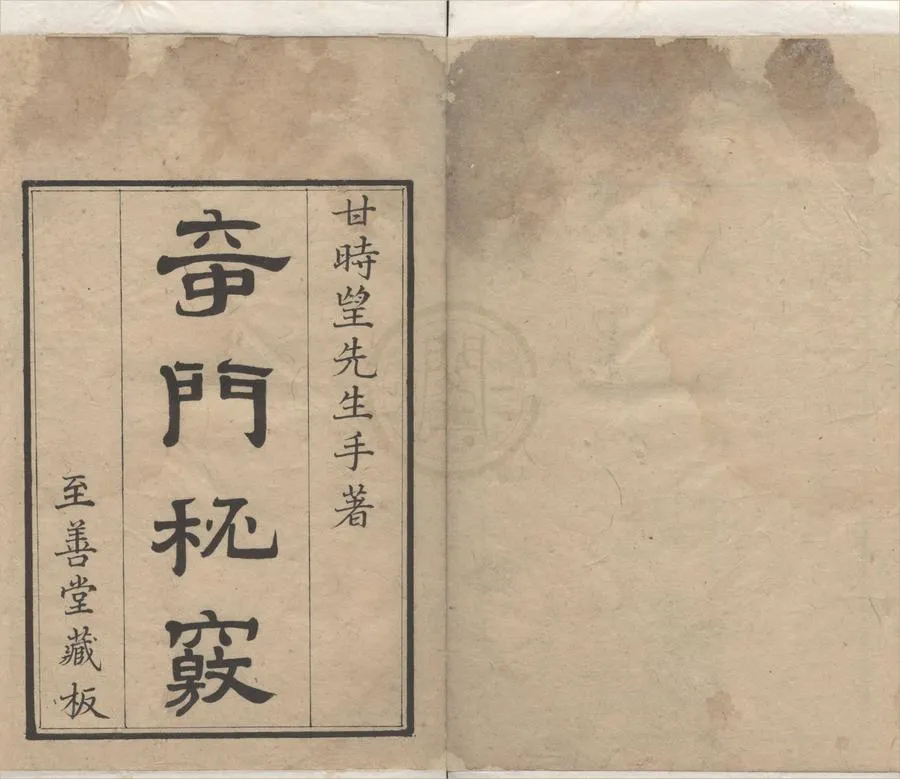 甘時望先生手著
奇門秘竅
至善堂藏板